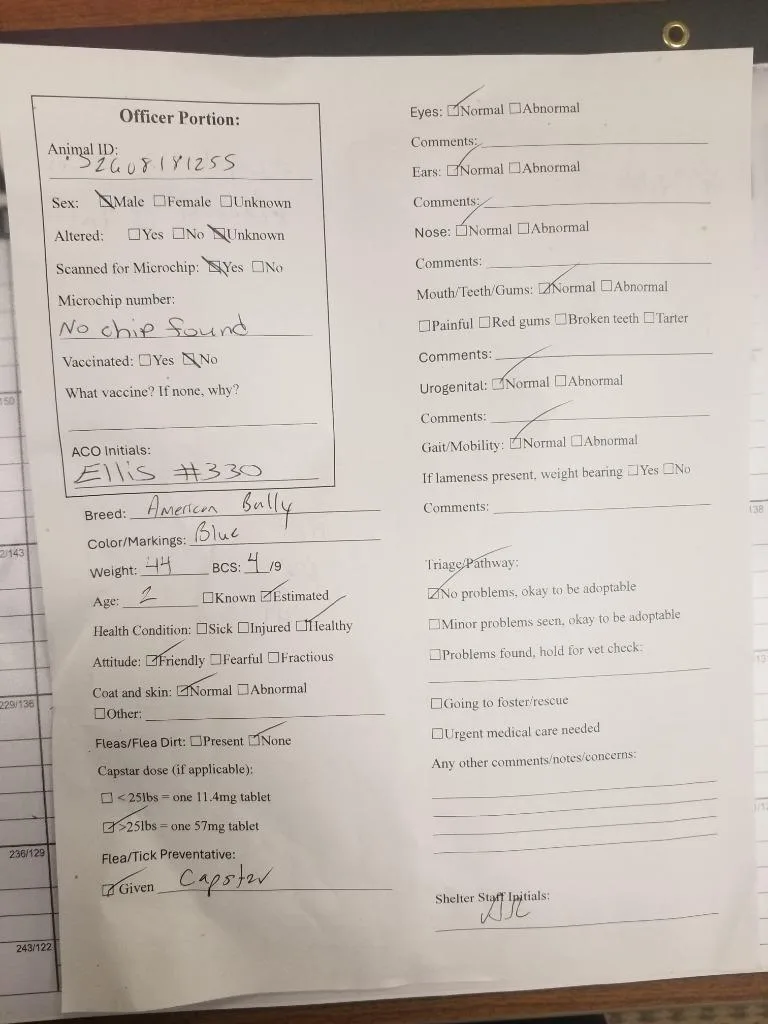 Officer Portion:
Animal ID:
S2608181255
Sex: ☒Male ☐Female ☐Unknown
Altered: ☐Yes ☐No ☒Unknown
Scanned for Microchip: ☒Yes ☐No
Microchip number:
No chip found
Vaccinated: ☐Yes ☒No
What vaccine? If none, why?
ACO Initials:
Ellis #330
Breed: American Bully
Color/Markings: Blue
Weight: 44 BCS: 4/9
Age: 2 ☐Known ☑Estimated
Health Condition: ☐Sick ☐Injured ☑Healthy
Attitude: ☑Friendly ☐Fearful ☐Fractious
Coat and skin: ☑Normal ☐Abnormal
☐Other:
Fleas/Flea Dirt: ☐Present ☑None
Capstar dose (if applicable):
☐ <25lbs = one 11.4mg tablet
☑>25lbs = one 57mg tablet
Flea/Tick Preventative:
☑Given Capstar
Eyes: ☑Normal ☐Abnormal
Comments:
Ears: ☑Normal ☐Abnormal
Comments:
Nose: ☑Normal ☐Abnormal
Comments:
Mouth/Teeth/Gums: ☑Normal ☐Abnormal
☐Painful ☐Red gums ☐Broken teeth ☐Tarter
Comments:
Urogenital: ☑Normal ☐Abnormal
Comments:
Gait/Mobility: ☑Normal ☐Abnormal
If lameness present, weight bearing ☐Yes ☐No
Comments:
Triage/Pathway:
☑No problems, okay to be adoptable
☐Minor problems seen, okay to be adoptable
☐Problems found, hold for vet check:
☐Going to foster/rescue
☐Urgent medical care needed
Any other comments/notes/concerns:
Shelter Staff Initials:
229/136
236/129
243/122